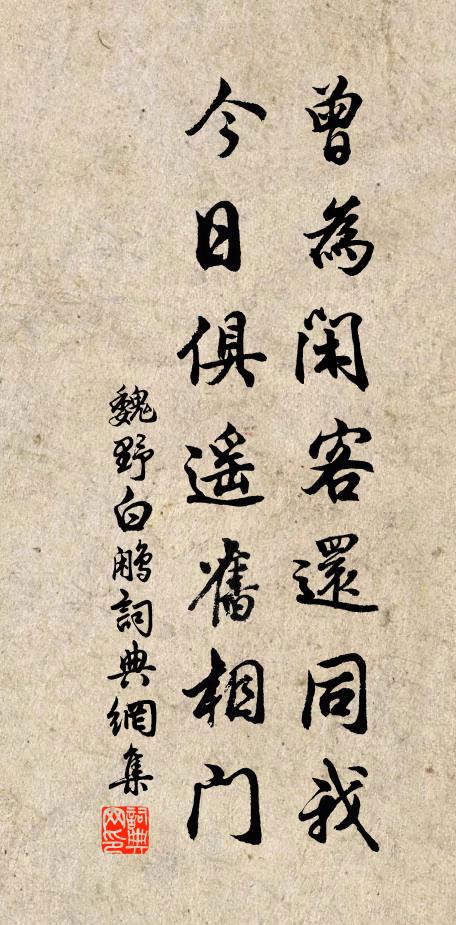 曾為閑客還同我
今日俱遥舊相門
魏野白鷴詞典網集
詞典网印